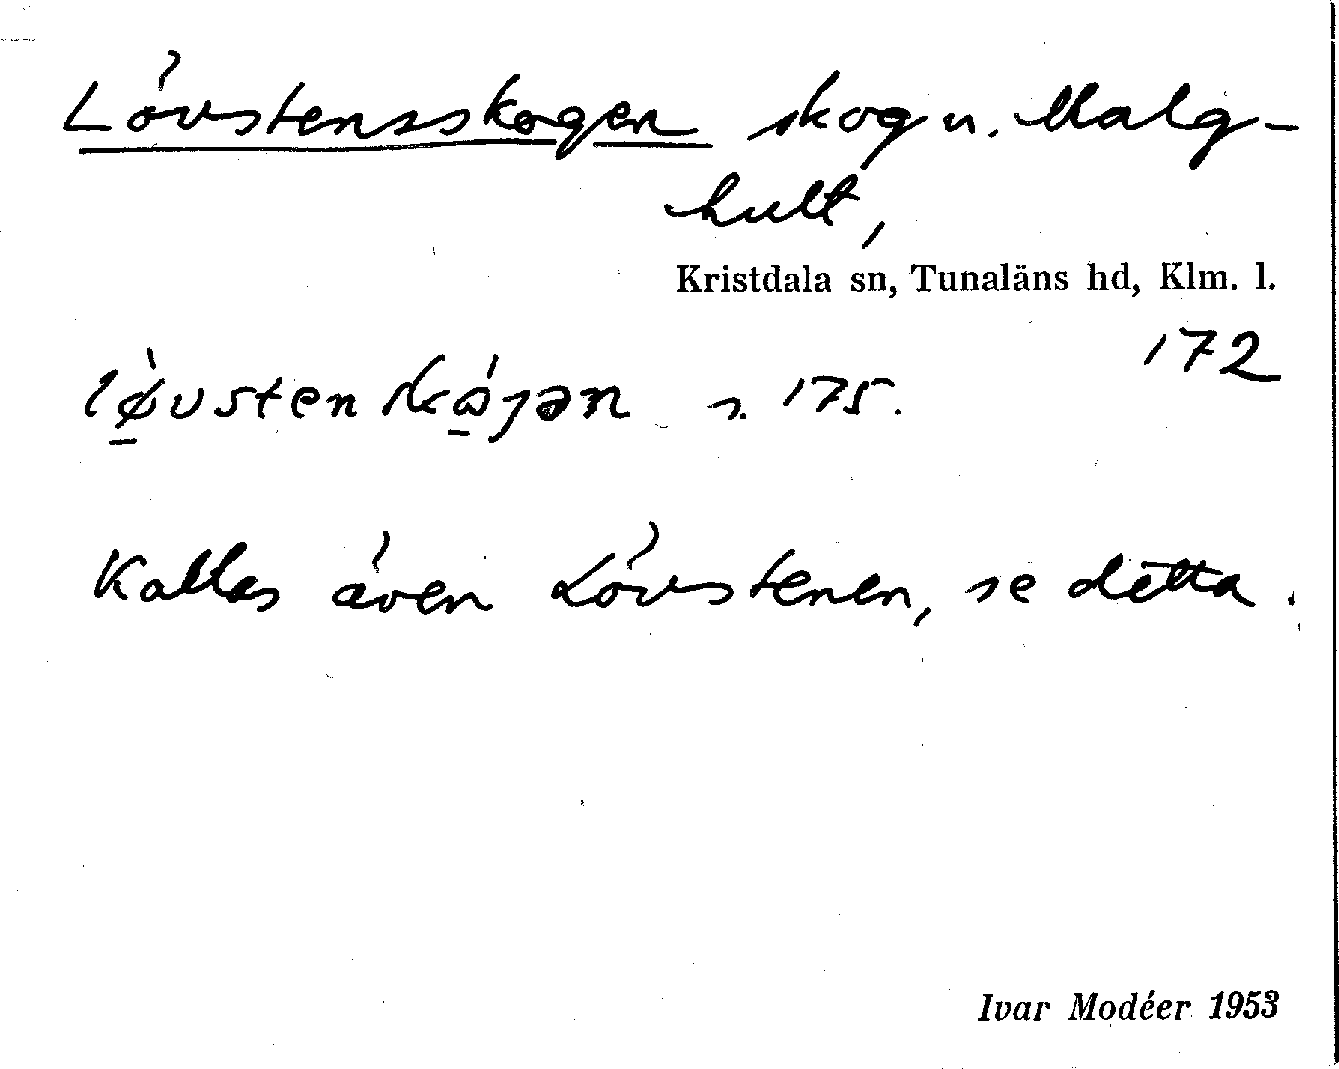 Lövstensskogen skog u. Malg-
hult,
Kristdala sn, Tunaläns hd, Klm. l.
172
lø̱̀vsten skò̱jən s. 175.
Kallas även Lövstenen, se detta.
Ivar Modéer 1953